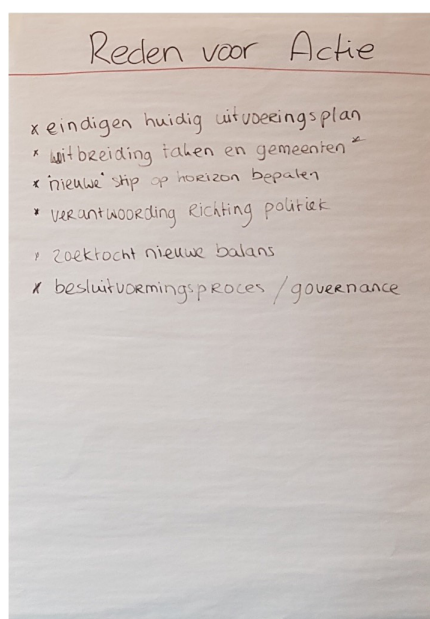 Reden voor Actie
x eindigen huidig uitvoeringsplan
x uitbreiding taken en gemeenten *
x 'nieuwe' stip op horizon bepalen
x verantwoording richting politiek
x zoektocht nieuwe balans
x besluitvormingsproces / governance